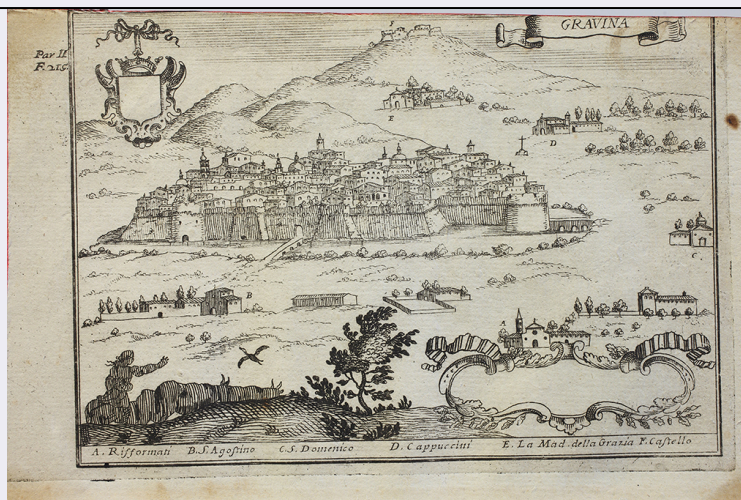 GRAVINA
Par II
F. 215
F
E
D
C
B
A
A. Rifformati B. S. Agostino C. S. Domenico D. Cappuccini E. La Mad. della Grazia F. Castello